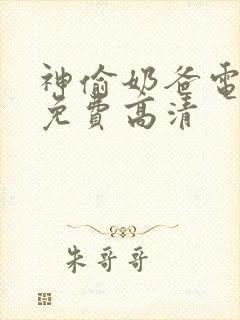 神偷奶爸電
免費高清
朱哥哥